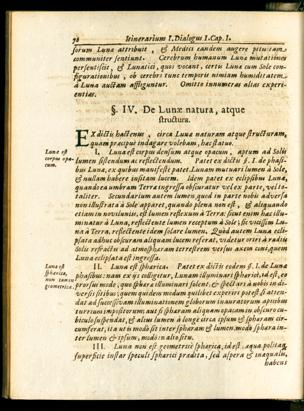 70 Itinerarium I. Dialogus I. Cap. I.
sorum Luna attribuit, & Medici eandem augere pituitam
communiter sentiunt. Cerebrum humanum Lunæ mutationes
persentiscit, & Lunatici, quos vocant, certis Lunæ cum Sole con-
figurationibus, ob cerebri tunc temporis nimiam humiditatem
à Luna auctam affliguntur. Omitto innumeras alias experi-
entias.
§. IV. De Lunæ natura, atque
structura.
EX dictis hactenus, circa Lunæ naturam atque structuram,
quam præcipuè indagare volebam, hæc statuo.
Luna est
corpus opa-
cum.
I. Luna est corpus densum atque opacum, aptum ad Solis
lumen sistendum ac reflectendum. Patet ex dictis §. I. de phasi-
bus Lunæ, ex quibus manifestè patet Lunam mutuari lumen à Sole,
& nullam habere suapte lucem. Idem patet ex eclipsibus Lunæ,
quando ea umbram Terræ ingressa obscuratur vel ex parte, vel to-
taliter. Secundarium autem lumen quod in parte nobis adversa
non illustrata à Sole apparet, quando plena non est, & aliquando
etiam in noviluniis, est lumen reflexum à Terra: sicut enim hæc illu-
minatur à Luna, reflectente lumen receptum à Sole; sic vicissim Lu-
na à Terra, reflectente idem solare lumen. Quòd autem Luna ecli-
psata adhuc obscuram aliquam lucem referat, videtur oriri à radiis
Solis refractis ad atmosphæram terrestrem versus axem coni, quem
Luna eclipsata est ingressa.
Luna est
sphærica,
non tamen
geometricè.
II. Luna est sphærica. Patet ex dictis eodem §. I. de Lunæ
phasibus: nam ea quæ videtur, Lunam illuminari sphæricè, id est, eo
prorsus modo, quo sphæra illuminari solent, & spectari à nobis in di-
versis sitibus; quem quidem modum quilibet experiri potest, si atten-
dat ad successivam illuminationem globorum in auratorum apicibus
turrium impositorum; aut si sphæram aliquam opacam in obscuro cu-
biculo suspendat, & alius lumen à longè circa ipsum & sphæram cir-
cumferat, ita ut is modò sit inter sphæram & lumen, modò sphæra in-
ter lumen & ipsum, modò in alio situ.
III. Luna non est geometricè sphærica, id est, æqua politaq;
superficie instar speculi sphærici prædita, sed aspera & inæquali,
habens